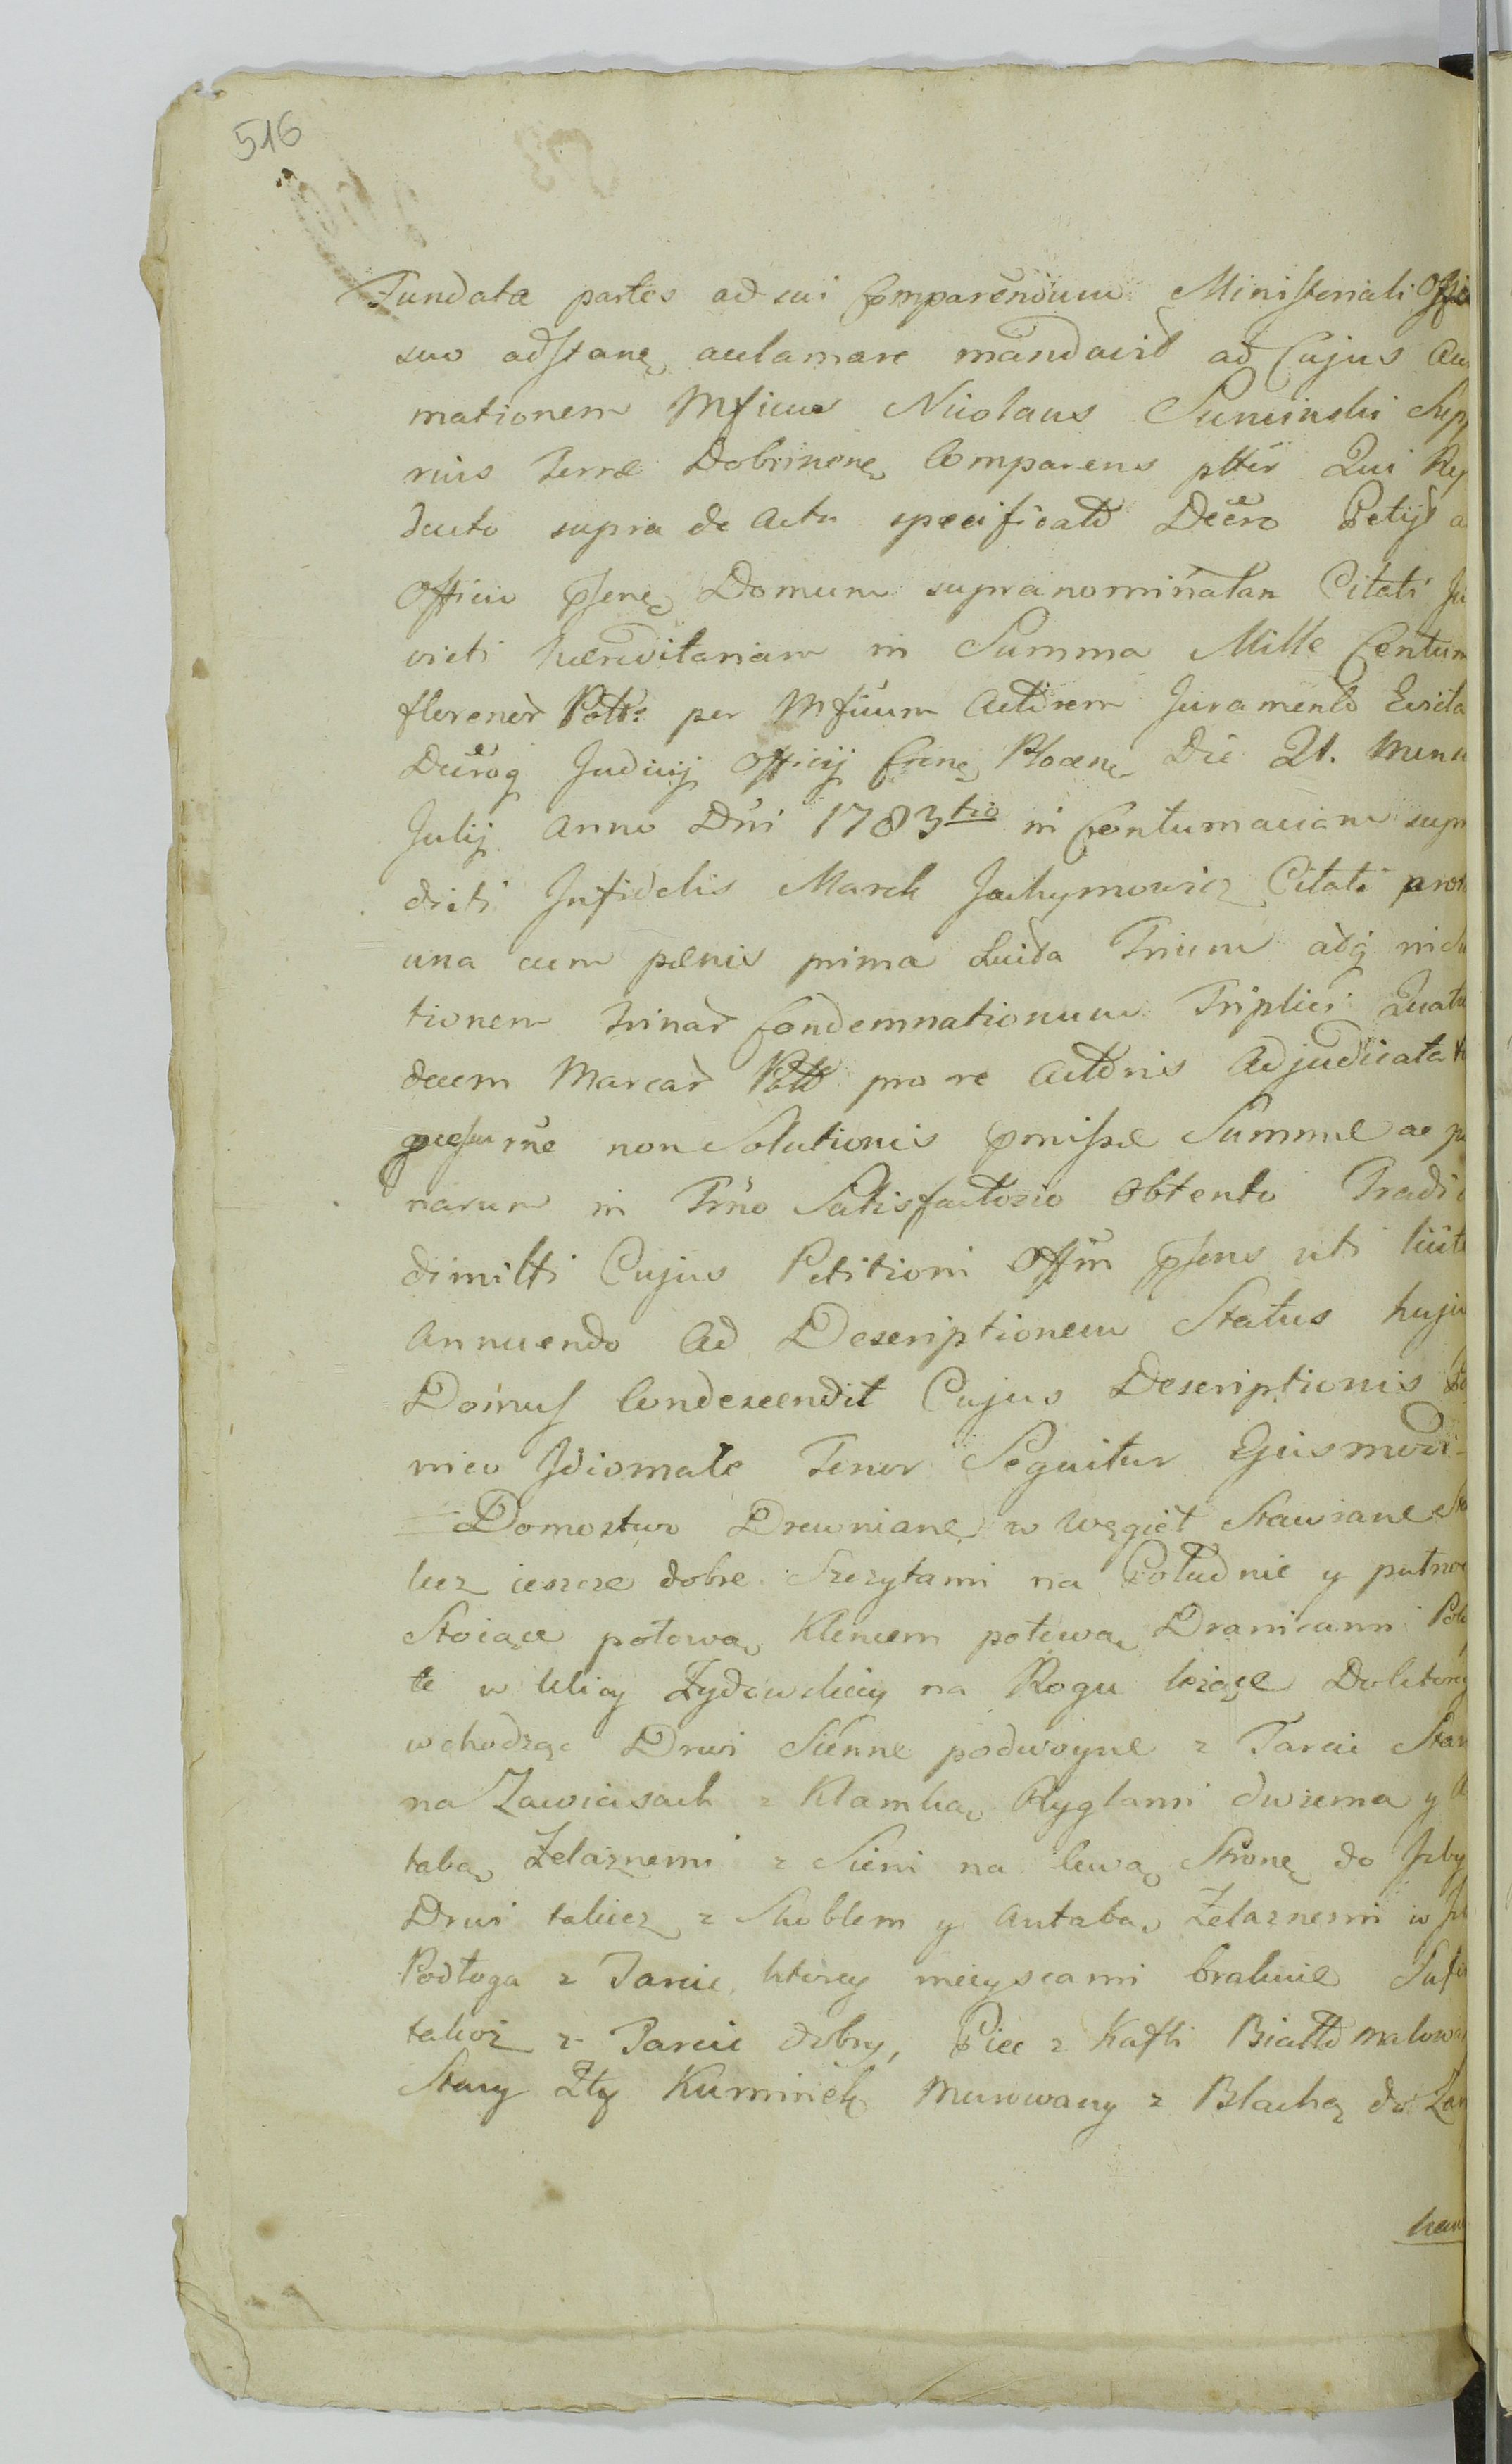 516
Fundata partes ad sui Comparendum Ministeriali Offici
suo adstanę acclamare mandavit ad Cujus Accl
mationem Mficus Nicolaus Sumiński Supp
rius Terræ Dobrinenę Comparens pltɨr Qui Rep
ducto supra de Actu specificato Dcero Petijt a
Officio psenę Domum supranominatam Citati Ju
victi hæreditariam in Summa Mille Centum
florenor Polł: per Mficum Actorem Juramento Evicta
Decroq Judicij Officij Crenę Plocenę Die 21. Mens
Julij Anno Dni 1783tio in Contumaciam supr
dicti Infidelis Marek Jachymowicz Citati pro
una cum pœnis prima Luita Trium adq
tionem trinar Condemnationum Triplici Quatu
decem Marcar Poll pro re Actoris Adjudicata
rñe non Solutionis pmissæ Summæ ac pœ
narum in Trno Satisfactorio Obtento Tradi
dimitti Cujus Petitioni Offm psens uti licit
Annuendo Ad Descriptionem Status huju
Domus Condescendit Cujus Descriptionis Po
nico Idiomate Tenor Sequitur Ejusmodi -
Domostwo Drewnianę w Węgieł Stawiane Sta
lecz ieszcze dobre Szczytami na Południe y pułnoc
Stoiące połową Kleńcem połową Dranicami Pok
te w Ulicy Zydowskiey na Rogu lezące Doktorey
wchodząc Drwi Sienne podwoyne z Tarcic Star
na Zawiasach z Klamką Ryglami dwiema y A
tabą Zelaznemi z Sieni na lewą Stronę do Izby
Drwi takież z Skoblem y Antabą Zelaznemi w Iz
Podłoga z Tarcic, ktorey mieyscami brakuie Sufi
takoż z Tarcic dobry, Piec z Kafli Biało malowa
Stary Zły Kuminek Murowany z Blachą do Zam
kan